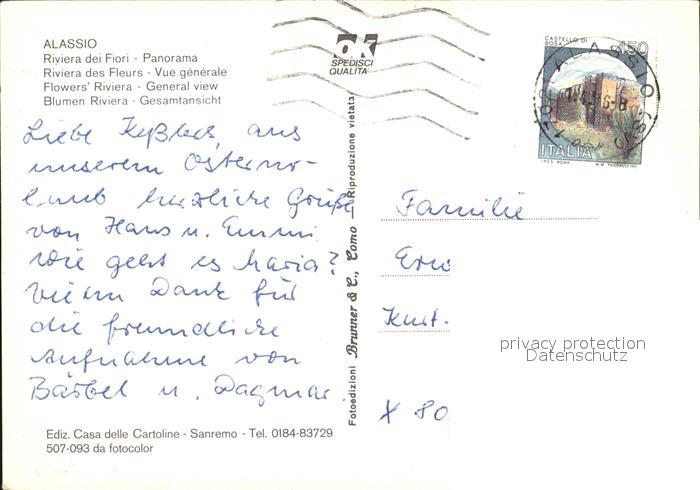 ALASSIO
Riviera dei Fiori - Panorama
Riviera des Fleurs - Vue générale
Flowers' Riviera - General view
Blumen Riviera - Gesamtansicht
ok
SPEDISCI
QUALITÀ
CASTELLO DI
BOSA
450
ALASSIO
ITALIA
Liebe Keßlers, aus
unserem Osterur-
laub herzliche Grüße
von Hans u. Emmi
Wie geht es Maria?
Vielen Dank für
die freundliche
Aufnahme von
Bärbel u. Dagmar.
Fotoedizioni Brunner & C., Como — Riproduzione vietata
Familie
Kurt-
privacy protection
Datenschutz
X 80
Ediz. Casa delle Cartoline - Sanremo - Tel. 0184-83729
507-093 da fotocolor